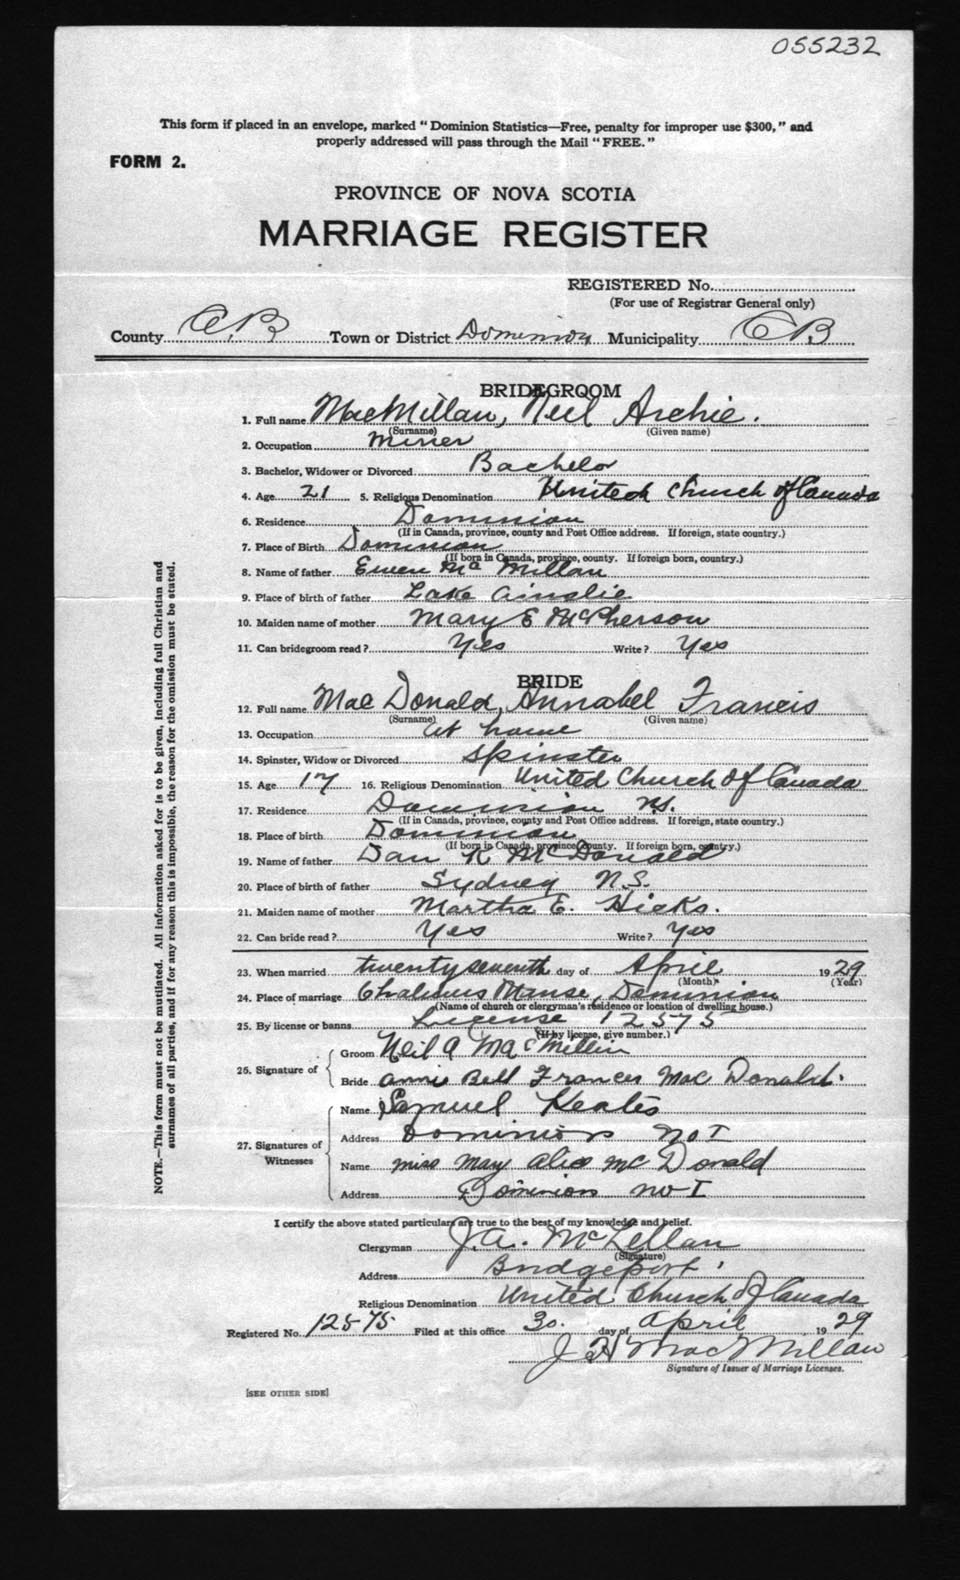 055232
This form if placed in an envelope, marked "Dominion Statistics—Free, penalty for improper use $300," and
properly addressed will pass through the Mail "FREE."
FORM 2.
PROVINCE OF NOVA SCOTIA
MARRIAGE REGISTER
REGISTERED No.
(For use of Registrar General only)
County C.B Town or District Dominion Municipality CB
BRIDEGROOM
1. Full name MacMillan, Neil Archie.
(Surname) (Given name)
2. Occupation Miner
3. Bachelor, Widower or Divorced Bachelor
4. Age 21 5. Religious Denomination United Church of Canada
6. Residence Dominion
(If in Canada, province, county and Post Office address. If foreign, state country.)
7. Place of Birth Dominion
(If born in Canada, province, county. If foreign born, country.)
8. Name of father Ewen Mc Millan
9. Place of birth of father Lake Ainslie
10. Maiden name of mother Mary E McPherson
11. Can bridegroom read? Yes Write? Yes
BRIDE
12. Full name Mac Donald, Annabel Francis
(Surname) (Given name)
13. Occupation at home
14. Spinster, Widow or Divorced Spinster
15. Age 17 16. Religious Denomination United Church of Canada
17. Residence Dominion N.S.
(If in Canada, province, county and Post Office address. If foreign, state country.)
18. Place of birth Dominion
(If born in Canada, province, county. If foreign born, country.)
19. Name of father Dan R McDonald
20. Place of birth of father Sydney N.S.
21. Maiden name of mother Martha E. Hicks.
22. Can bride read? Yes Write? Yes
23. When married twenty seventh day of April 1929
(Month) (Year)
24. Place of marriage Chalmers Manse, Dominion
(Name of church or clergyman's residence or location of dwelling house.)
25. By license or banns License 12575
(If by license, give number.)
26. Signature of
Groom Neil A MacMillin
Bride Annie Bell Frances Mac Donald.
27. Signatures of Witnesses
Name Samuel Keates
Address Dominion No I
Name Miss May Alice McDonald
Address Dominion No I
I certify the above stated particulars are true to the best of my knowledge and belief.
Clergyman J.A. McLellan
(Signature)
Address Bridgeport,
Religious Denomination United Church of Canada
Registered No. 12575 Filed at this office 30. day of April 1929
J H MacMillan
Signature of Issuer of Marriage Licenses.
[SEE OTHER SIDE]
NOTE.—This form must not be mutilated. All information asked for is to be given, including full Christian and
surnames of all parties, and if for any reason this is impossible, the reason for the omission must be stated.